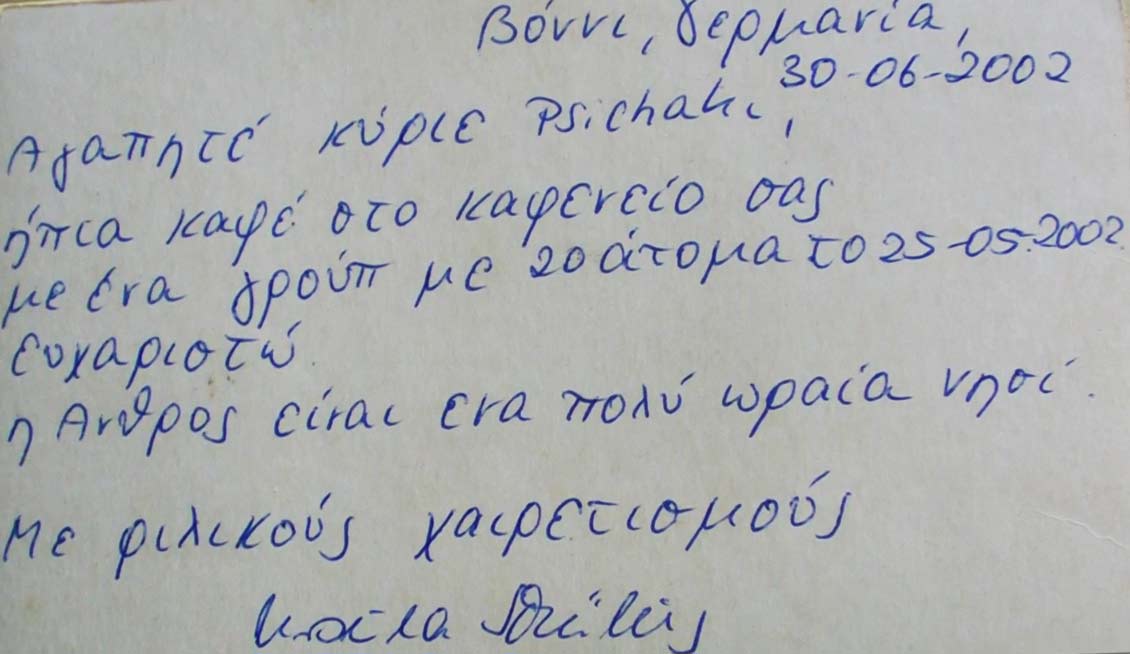 Βόννι, Γερμανία,
30-06-2002
Αγαπητέ κύριε Psichaki,
ήπια καφέ στο καφενείο σας
με ένα γρούπ με 20 άτομα το 25-05.2002.
ευχαριστώ.
η Ανθρος είναι ενα πολύ ωραία νησί.
Με φιλικούς χαιρετισμούς